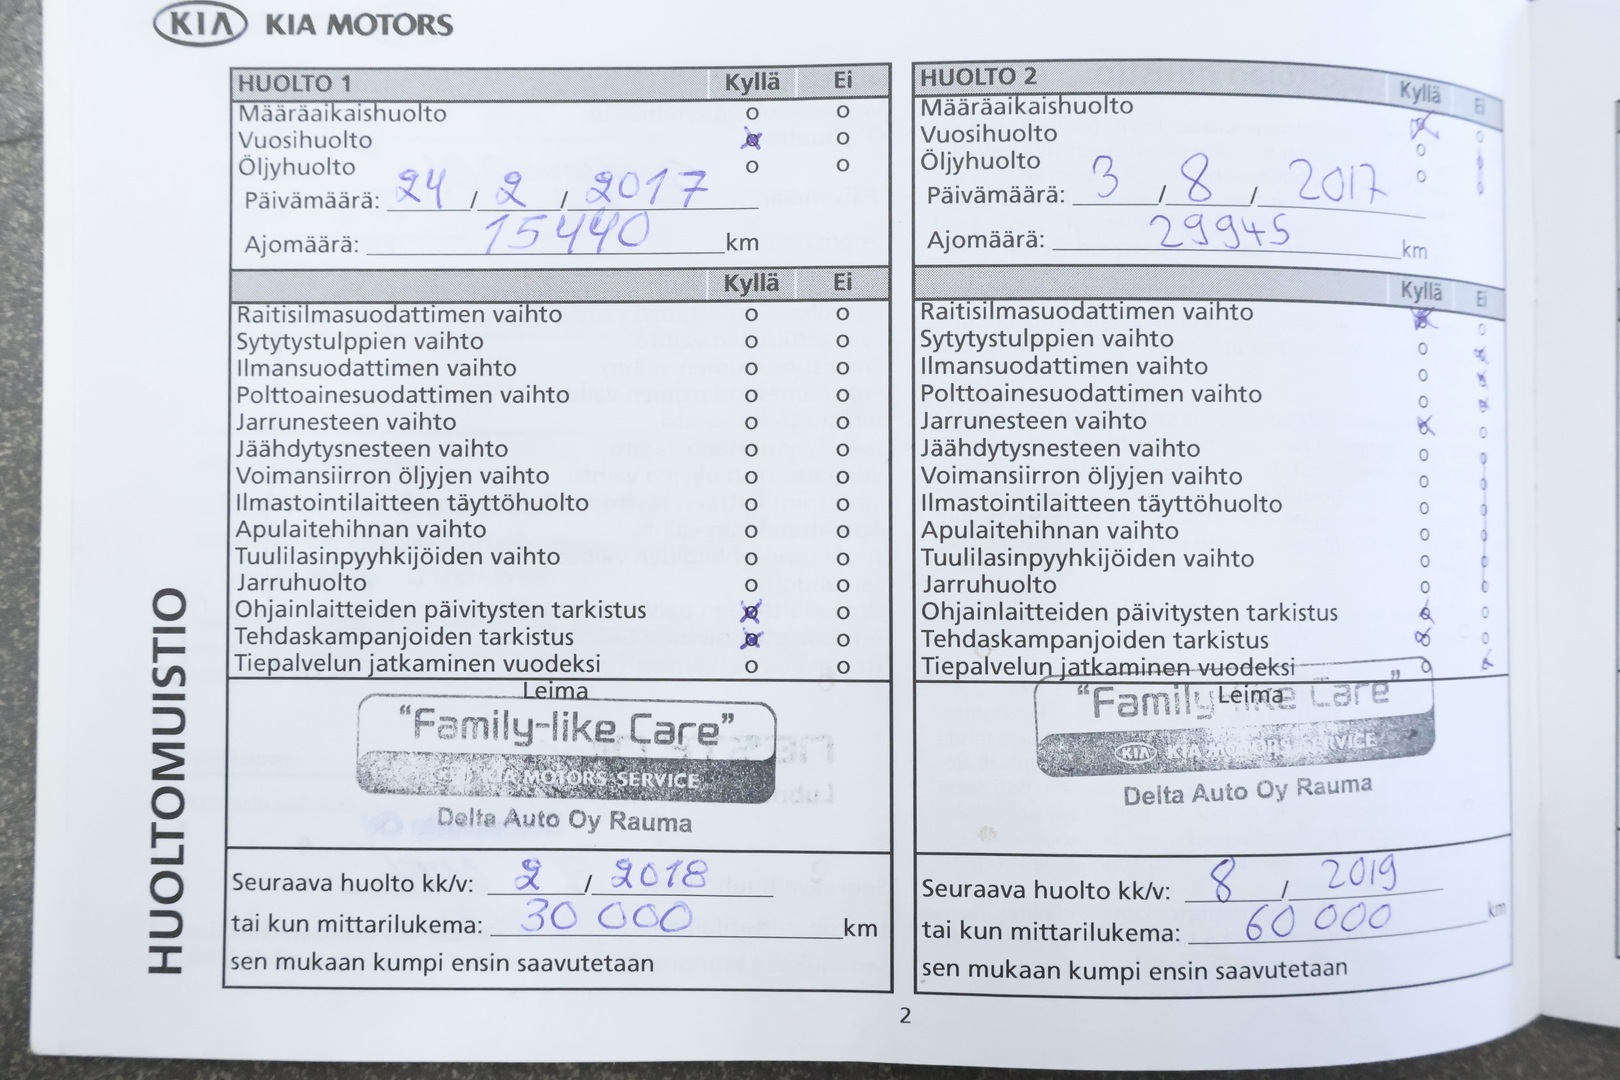 KIA KIA MOTORS
HUOLTOMUISTIO
HUOLTO 1 Kyllä Ei
Määräaikaishuolto o o
Vuosihuolto x o
Öljyhuolto o o
Päivämäärä: 24 / 2 / 2017
Ajomäärä: 15440 km
Kyllä Ei
Raitisilmasuodattimen vaihto o o
Sytytystulppien vaihto o o
Ilmansuodattimen vaihto o o
Polttoainesuodattimen vaihto o o
Jarrunesteen vaihto o o
Jäähdytysnesteen vaihto o o
Voimansiirron öljyjen vaihto o o
Ilmastointilaitteen täyttöhuolto o o
Apulaitehihnan vaihto o o
Tuulilasinpyyhkijöiden vaihto o o
Jarruhuolto o o
Ohjainlaitteiden päivitysten tarkistus x o
Tehdaskampanjoiden tarkistus x o
Tiepalvelun jatkaminen vuodeksi o o
Leima
"Family-like Care"
KIA KIA MOTORS SERVICE
Delta Auto Oy Rauma
Seuraava huolto kk/v: 2 / 2018
tai kun mittarilukema: 30 000 km
sen mukaan kumpi ensin saavutetaan
HUOLTO 2 Kyllä Ei
Määräaikaishuolto x o
Vuosihuolto o o
Öljyhuolto o o
Päivämäärä: 3 / 8 / 2017
Ajomäärä: 29945 km
Kyllä Ei
Raitisilmasuodattimen vaihto x o
Sytytystulppien vaihto o x
Ilmansuodattimen vaihto o x
Polttoainesuodattimen vaihto o x
Jarrunesteen vaihto x o
Jäähdytysnesteen vaihto o o
Voimansiirron öljyjen vaihto o o
Ilmastointilaitteen täyttöhuolto o o
Apulaitehihnan vaihto o o
Tuulilasinpyyhkijöiden vaihto o o
Jarruhuolto o o
Ohjainlaitteiden päivitysten tarkistus x o
Tehdaskampanjoiden tarkistus x o
Tiepalvelun jatkaminen vuodeksi o x
Leima
"Family-like Care"
KIA KIA MOTORS SERVICE
Delta Auto Oy Rauma
Seuraava huolto kk/v: 8 / 2019
tai kun mittarilukema: 60 000 km
sen mukaan kumpi ensin saavutetaan
2